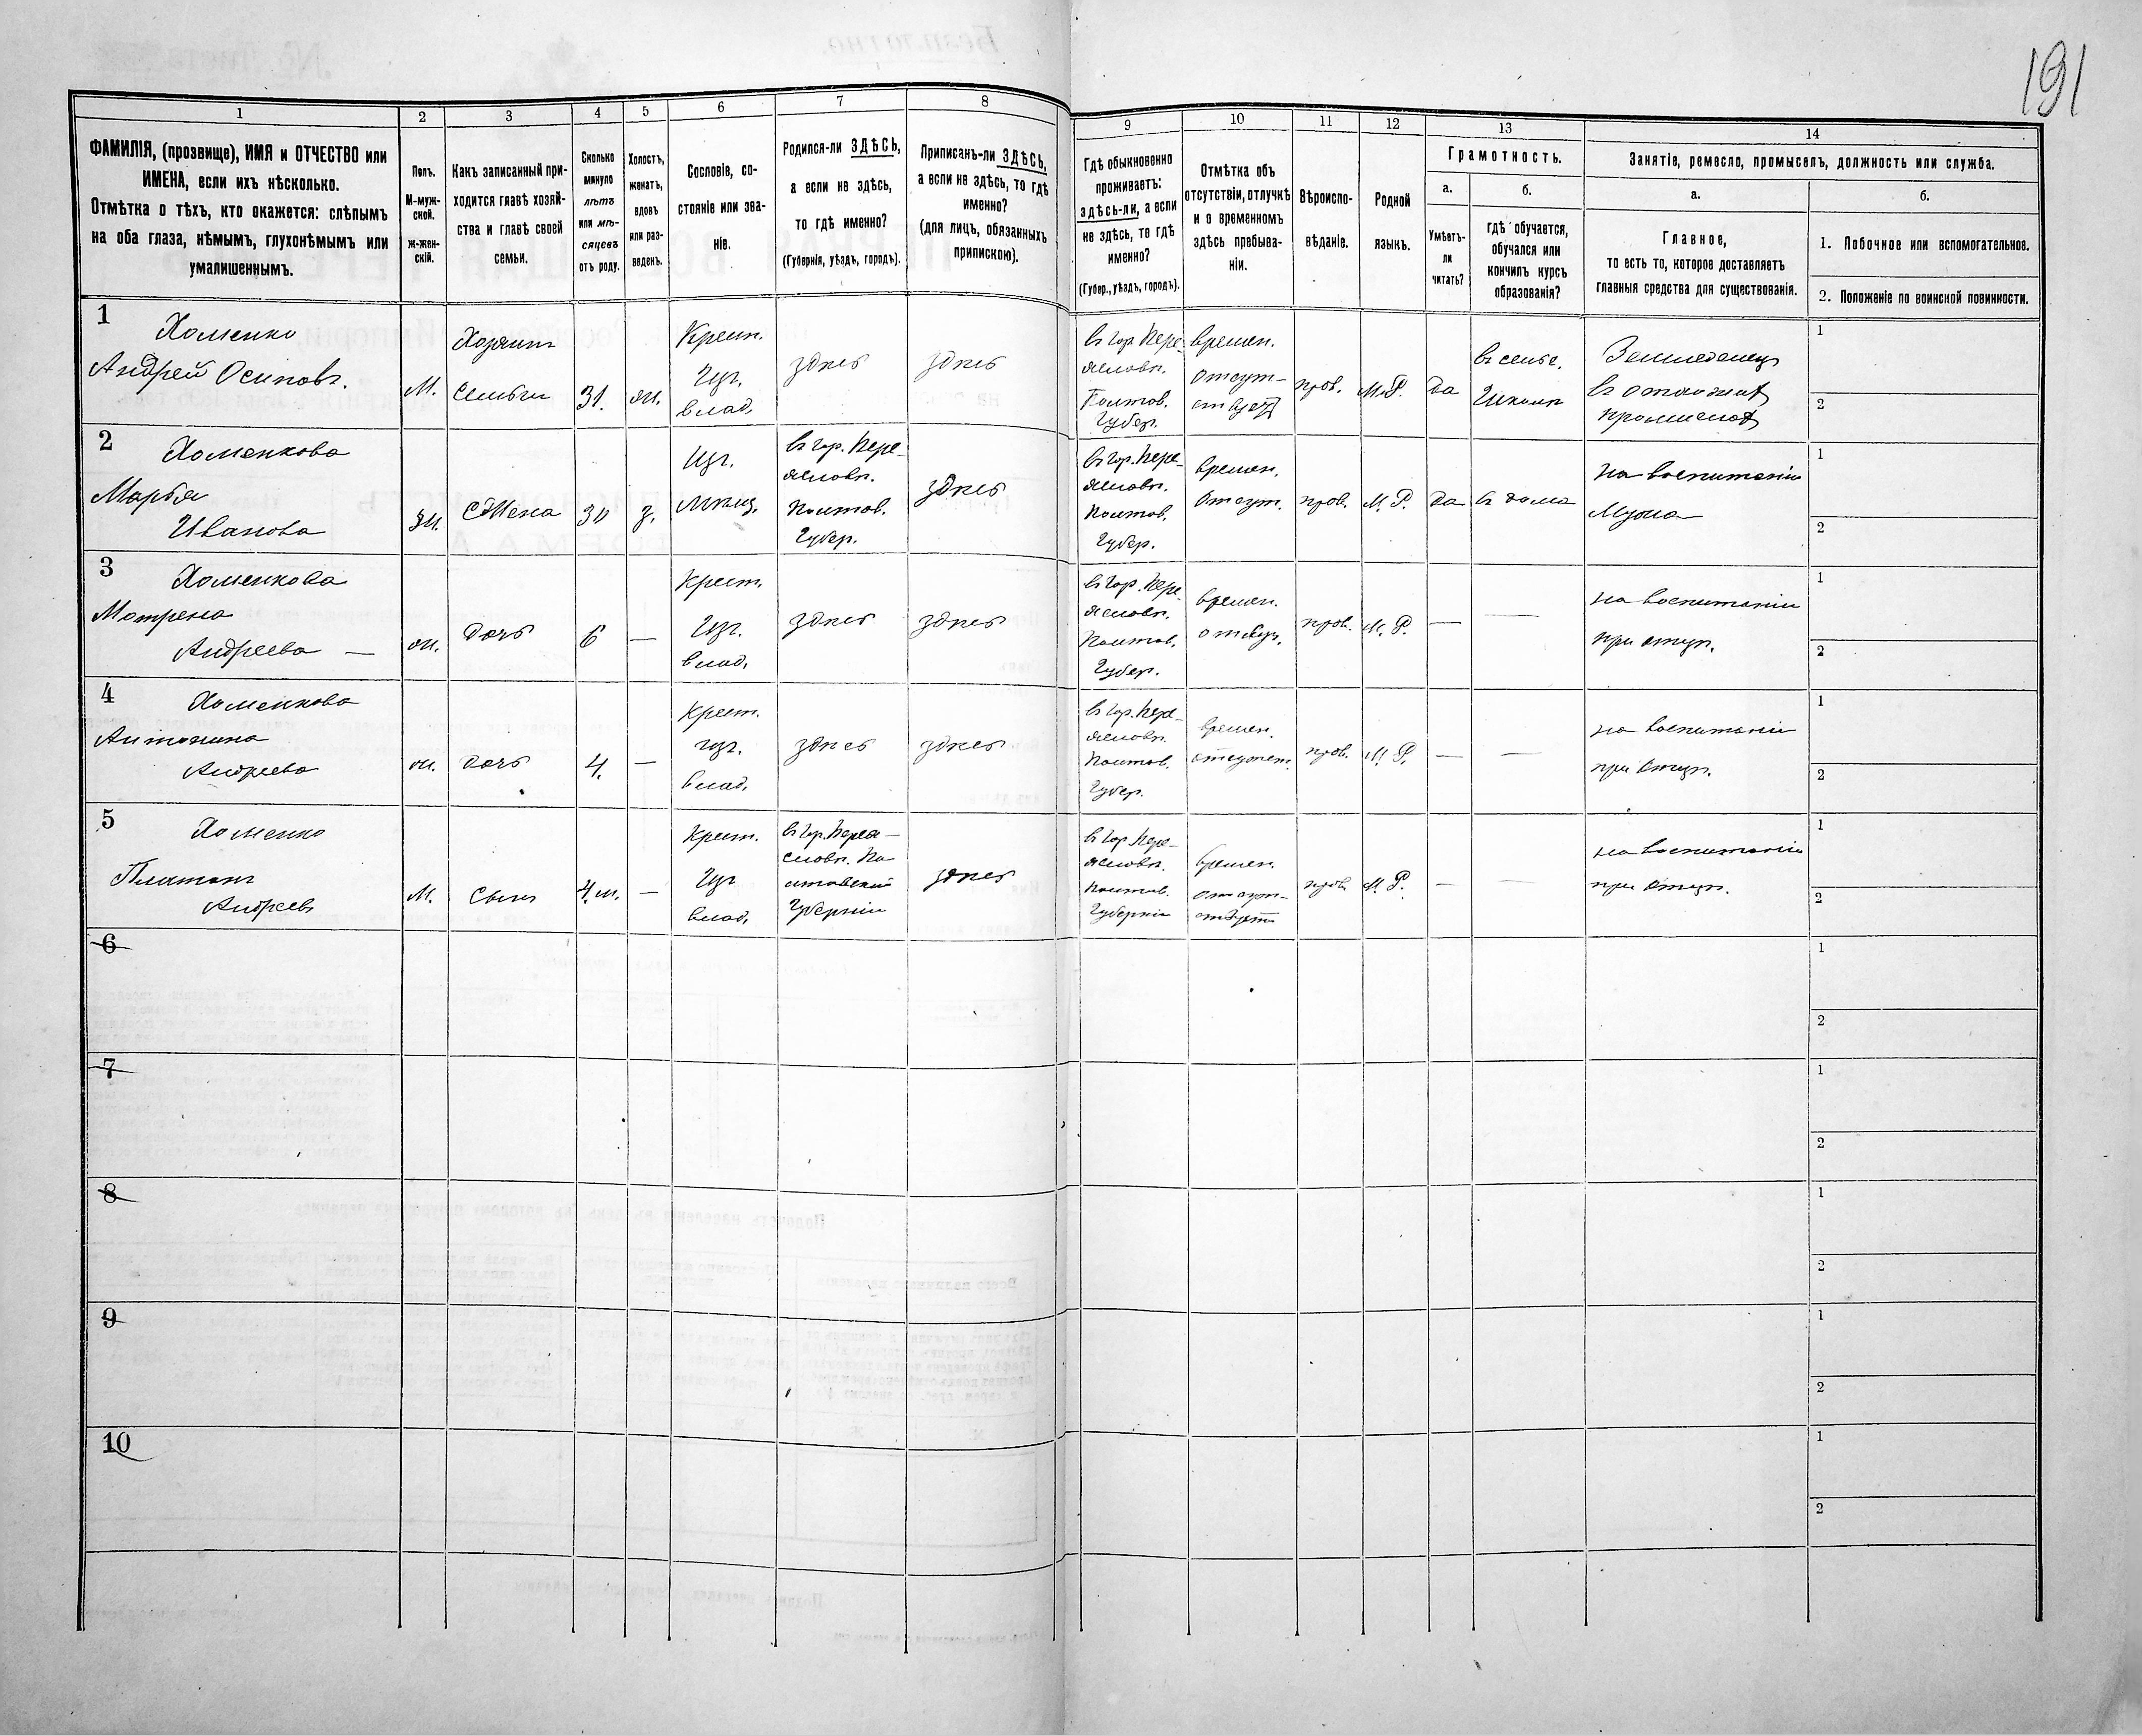 191
1
2
3
4
5
6
7
8
9
10
11
12
13
14
ФАМИЛІЯ, (прозвище), ИМЯ и ОТЧЕСТВО или
ИМЕНА, если ихъ нѣсколько.
Отмѣтка о тѣхъ, кто окажется: слѣпымъ
на оба глаза, нѣмымъ, глухонѣмымъ или
умалишеннымъ.
Полъ.
М-муж-
ской.
Ж-жен-
скій.
Какъ записанный при-
ходится главѣ хозяй-
ства и главѣ своей
семьи.
Сколько
минуло
лѣтъ
или мѣ-
сяцевъ
отъ роду.
Холостъ,
женатъ,
вдовъ
или раз-
веденъ.
Сословіе, со-
стояніе или зва-
ніе.
Родился-ли ЗДѢСЬ,
а если не здѣсь,
то гдѣ именно?
(Губернія, уѣздъ, городъ).
Приписанъ-ли ЗДѢСЬ,
а если не здѣсь, то гдѣ
именно?
(для лицъ, обязанныхъ
припискою).
Гдѣ обыкновенно
проживаетъ:
здѣсь-ли, а если
не здѣсь, то гдѣ
именно?
(Губер., уѣздъ, городъ).
Отмѣтка объ
отсутствіи, отлучкѣ
и о временномъ
здѣсь пребыва-
ніи.
Вѣроиспо-
вѣданіе.
Родной
языкъ.
Грамотность.
а.
б.
Умѣетъ-
ли
читать?
гдѣ обучается,
обучался или
кончилъ курсъ
образованія?
Занятіе, ремесло, промыселъ, должность или служба.
а.
б.
Главное,
то есть то, которое доставляетъ
главныя средства для существованія.
1. Побочное или вспомогательное.
2. Положеніе по воинской повинности.
1
Хоменко
Андрей Осиповъ.
М.
Хозяинъ
Семьи
31.
ж.
Крест.
Изг.
влад.
здѣсь
здѣсь
въ гор. Пере-
яславл.
Полтав.
Губер.
времен.
отсут-
ствует
прав.
М.Р.
Да
въ сельс.
Школѣ
Земледелец
1
2
2
Хоменкова
Марѳа
Иванова
ж.
Жена
30
з.
въ гор. Пере-
яславл.
Полтав.
Губер.
здѣсь
въ гор. Пере-
яславл.
Полтав.
Губер.
времен.
Отсут.
прав.
М. Р.
Да
въ дома
на воспитаніи
Мужа
1
2
3
Хоменкова
Мотрена
Андреева —
ж.
Дочь
6
—
Крест.
Изг.
влад.
здѣсь
здѣсь
въ гор. Пере-
яславл.
Полтав.
Губер.
времен.
прав.
М. Р.
—
—
на воспитаніи
при отцѣ.
1
2
4
Хоменкова
Антонина
Андреева
ж.
Дочь
4.
—
Крест.
изг.
влад.
здѣсь
здѣсь
въ гор. Пере-
яславл.
Полтав.
Губер.
времен.
прав.
М. Р.
—
—
на воспитаніи
при отцѣ.
1
2
5
Хоменко
Платонъ
Андреевъ
М.
Сынъ
4 м.
—
Крест.
Изг
влад.
въ гор. Перея-
славл. По-
лтавской
Губерніи
здѣсь
въ гор. Пере-
яславл.
Полтав.
Губерніи
времен.
отсут-
ствует
прав.
М. Р.
—
—
на воспитаніи
при отцѣ.
1
2
6
1
2
7
1
2
8
1
2
9
1
2
10
1
2